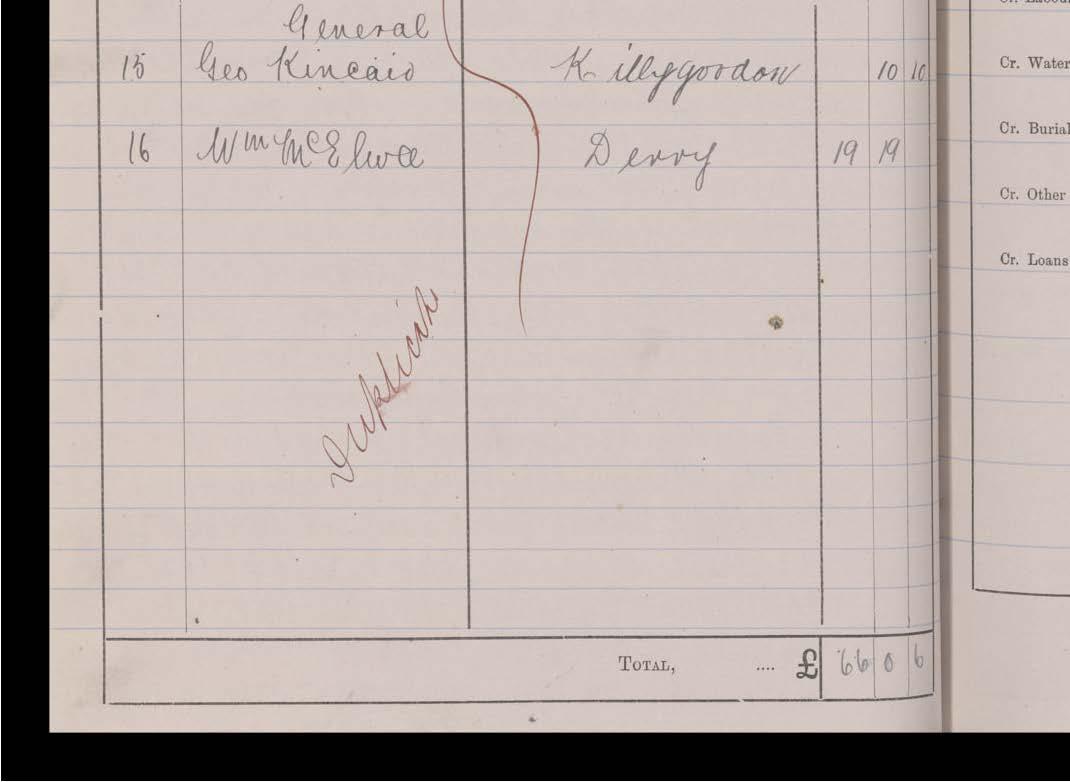 General
15 Geo Kincaid Killygordon 10 10
16 Wm McElwee Derry 19 19
Duplicate
TOTAL, .... £ 66 0 6
Cr. Water
Cr. Burial
Cr. Other
Cr. Loans